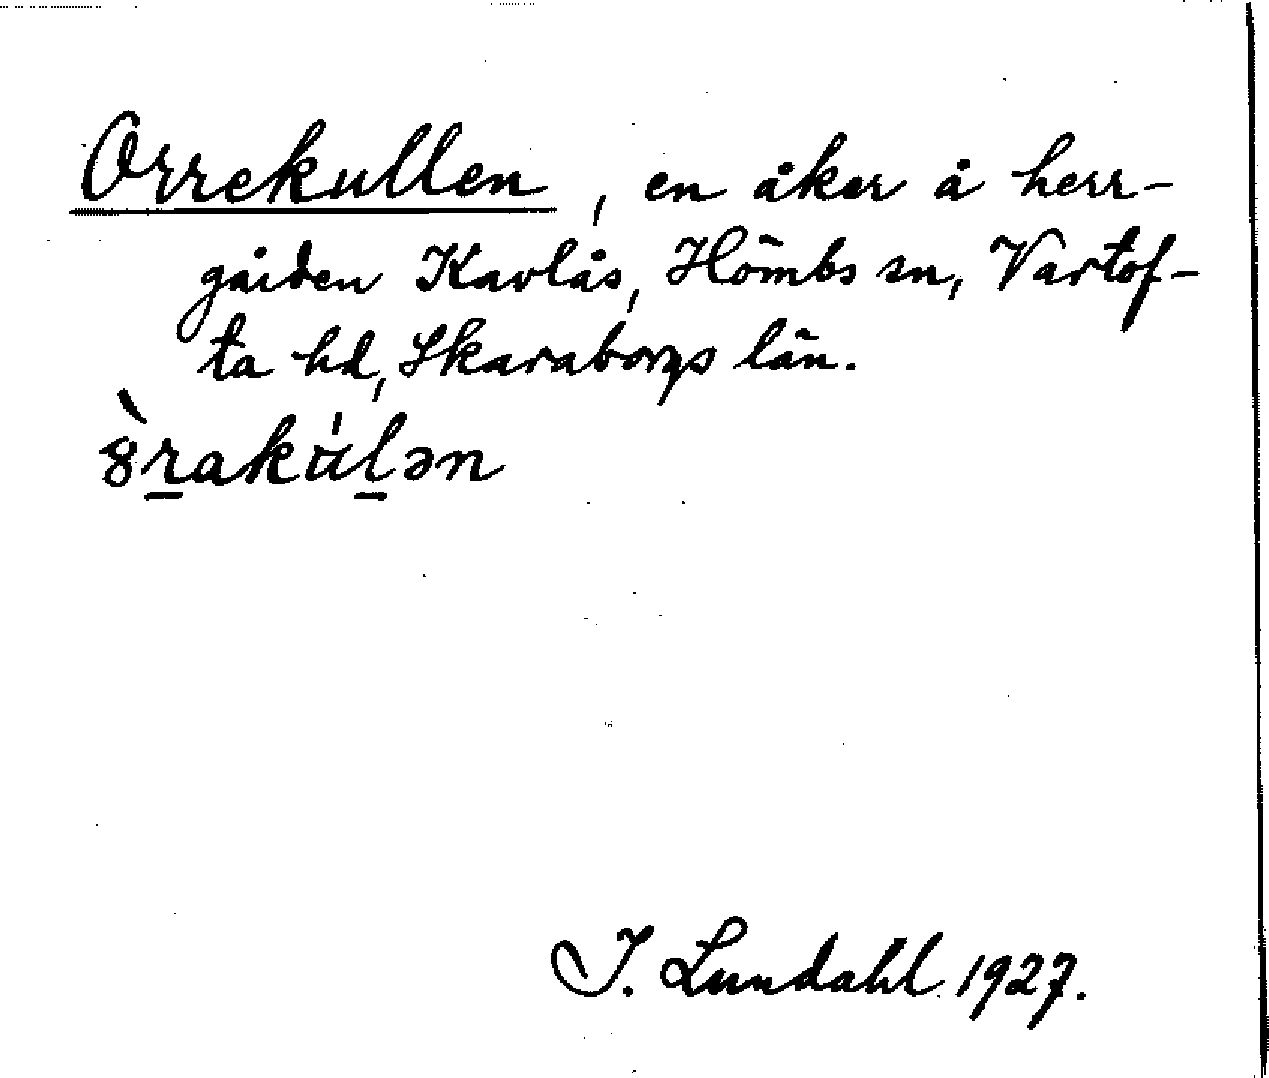 Orrekullen, en åker å herr-
gården Kavlås, Hömbs sn, Vartof-
ta hd, Skaraborgs län.
I. Lundahl 1927.